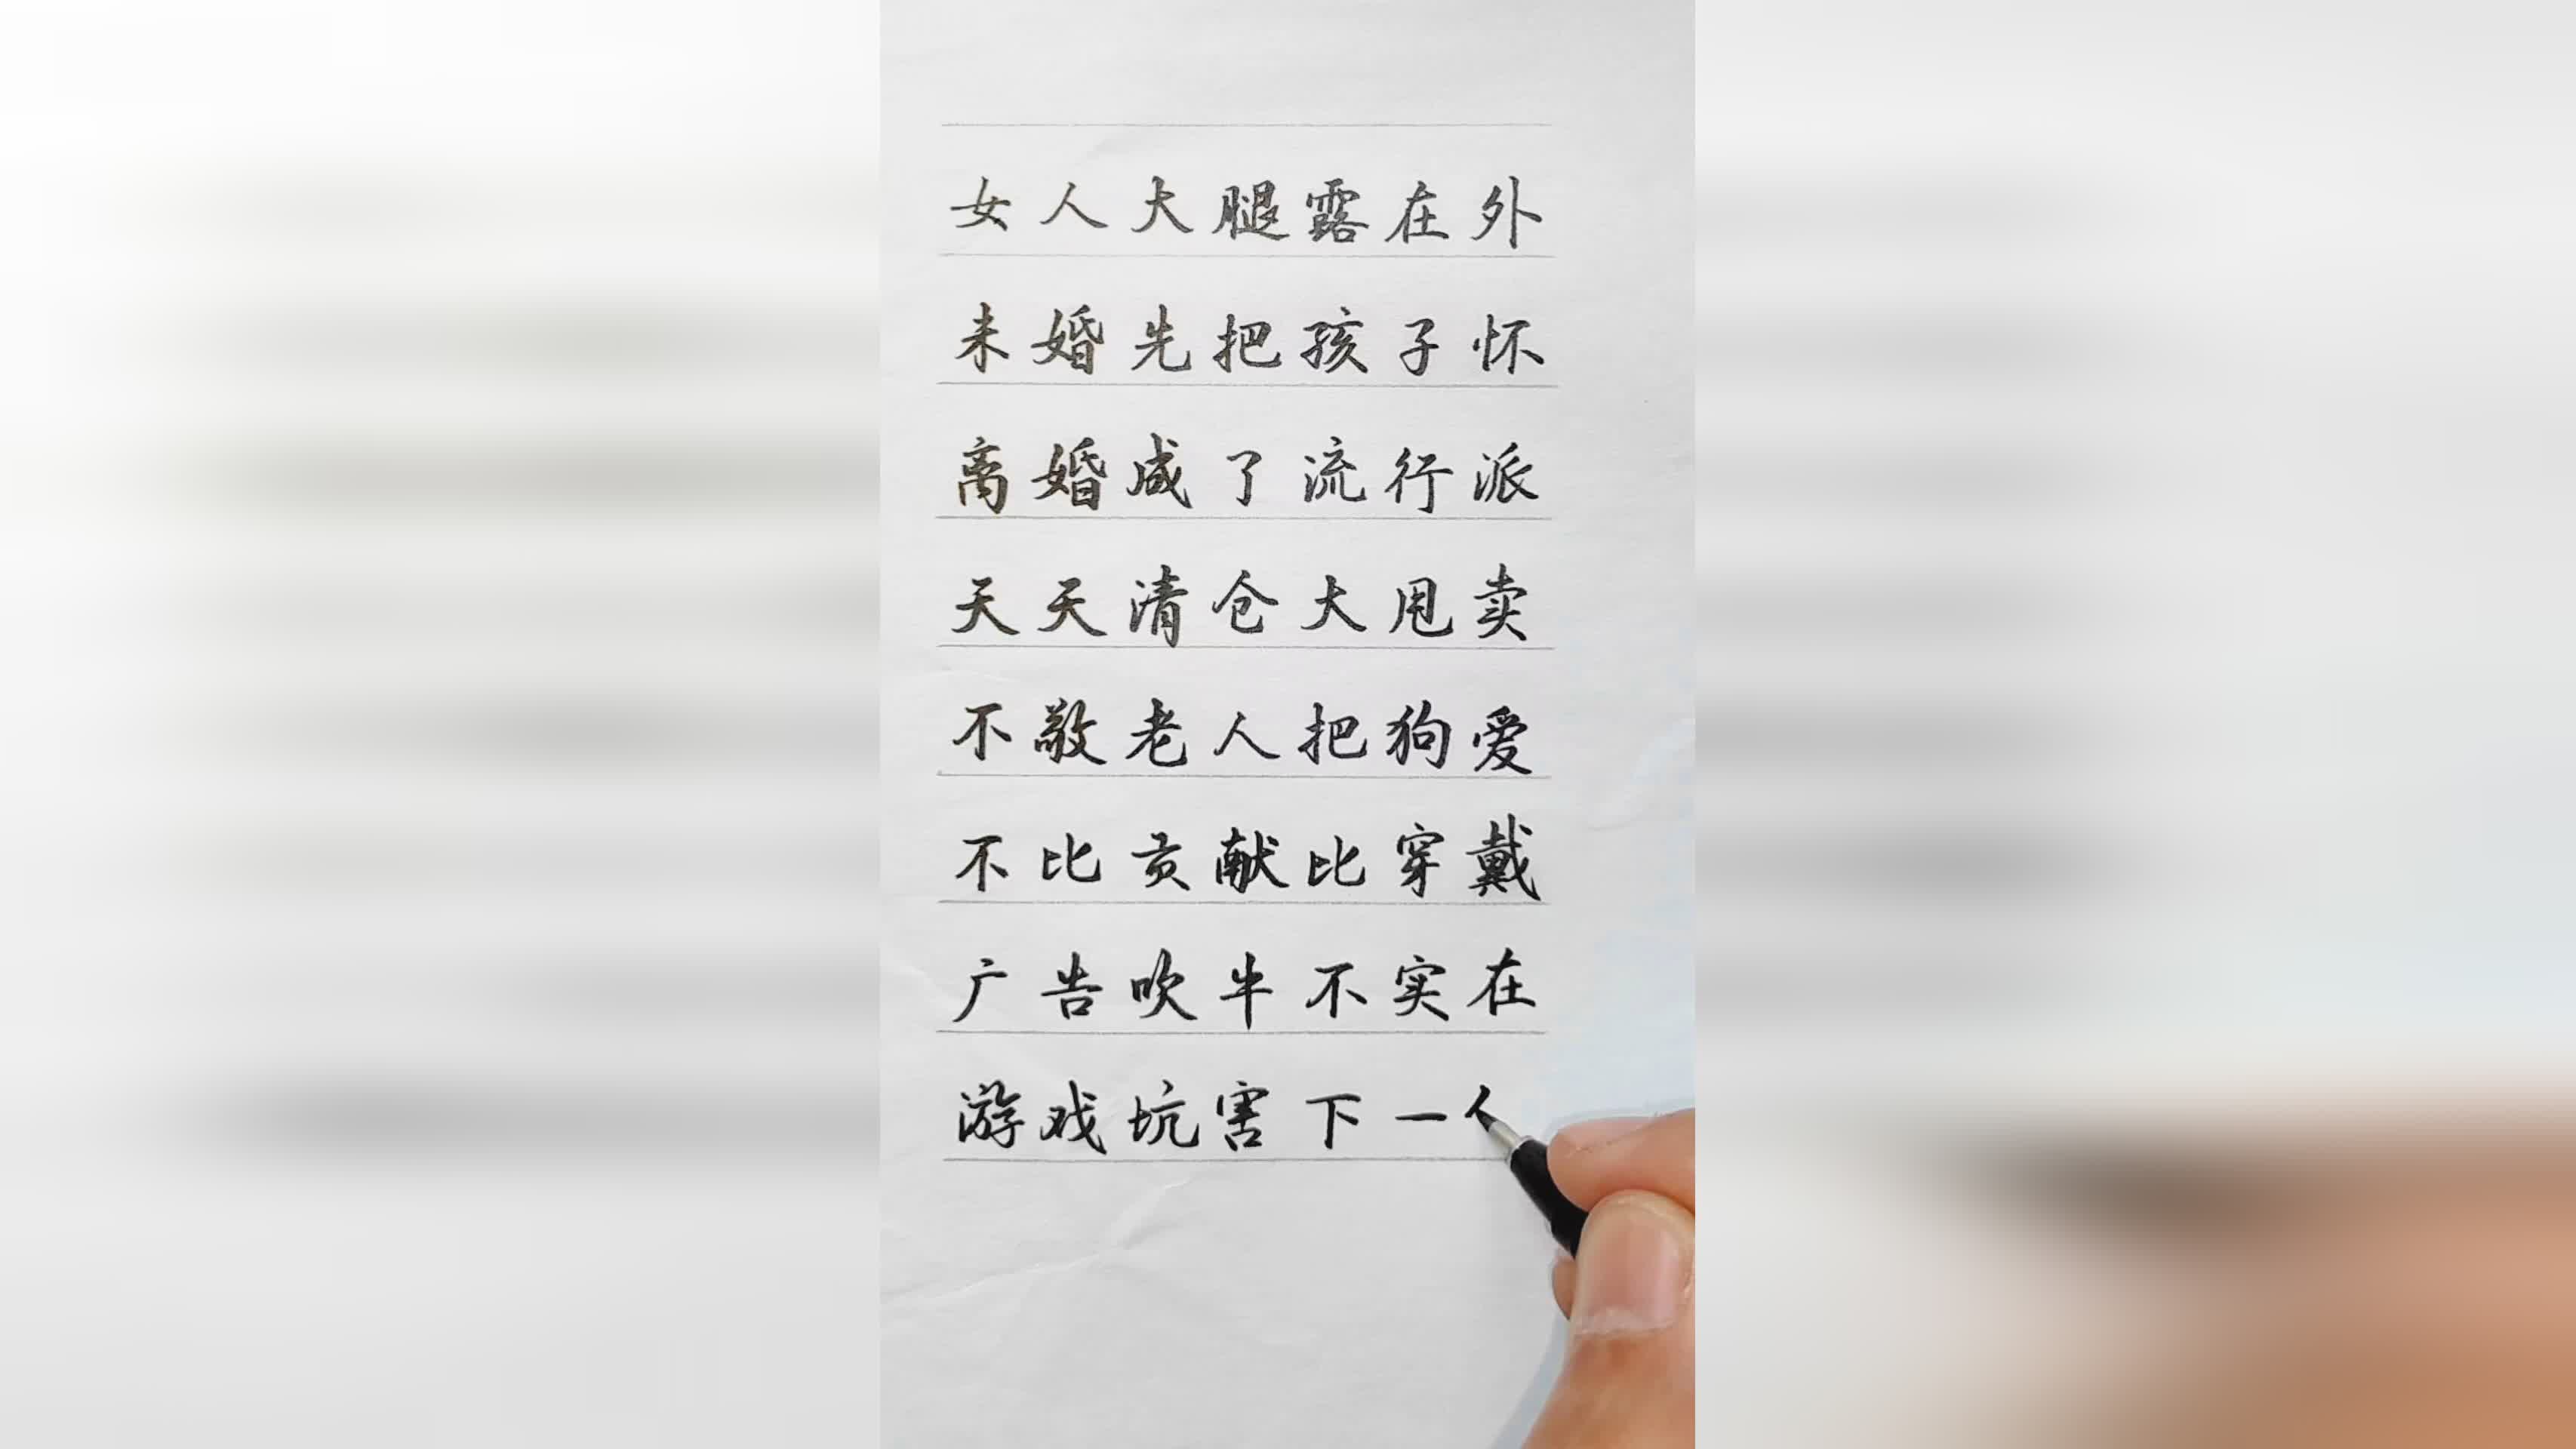 女人大腿露在外
未婚先把孩子怀
离婚成了流行派
天天清仓大甩卖
不敬老人把狗爱
不比贡献比穿戴
广告吹牛不实在
游戏坑害下一